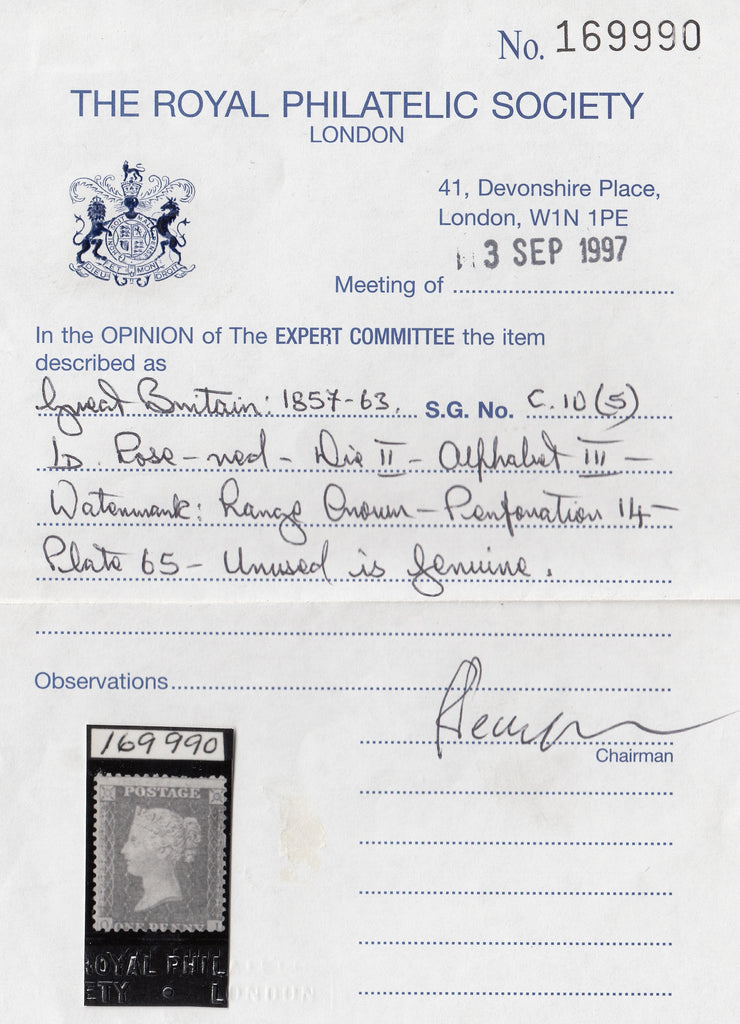 No. 169990
THE ROYAL PHILATELIC SOCIETY
LONDON
41, Devonshire Place,
London, W1N 1PE
3 SEP 1997
Meeting of
DIEU ET MON DROIT
In the OPINION of The EXPERT COMMITTEE the item
described as
Great Britain: 1857-63. S.G. No. C.10(5)
1D. Rose-red - Die II - Alphabet III -
Watermark: Large Crown - Perforation 14 -
Plate 65 - Unused is genuine.
Observations
Chairman
169990
POSTAGE
ROYAL PHIL
ETY • LONDON